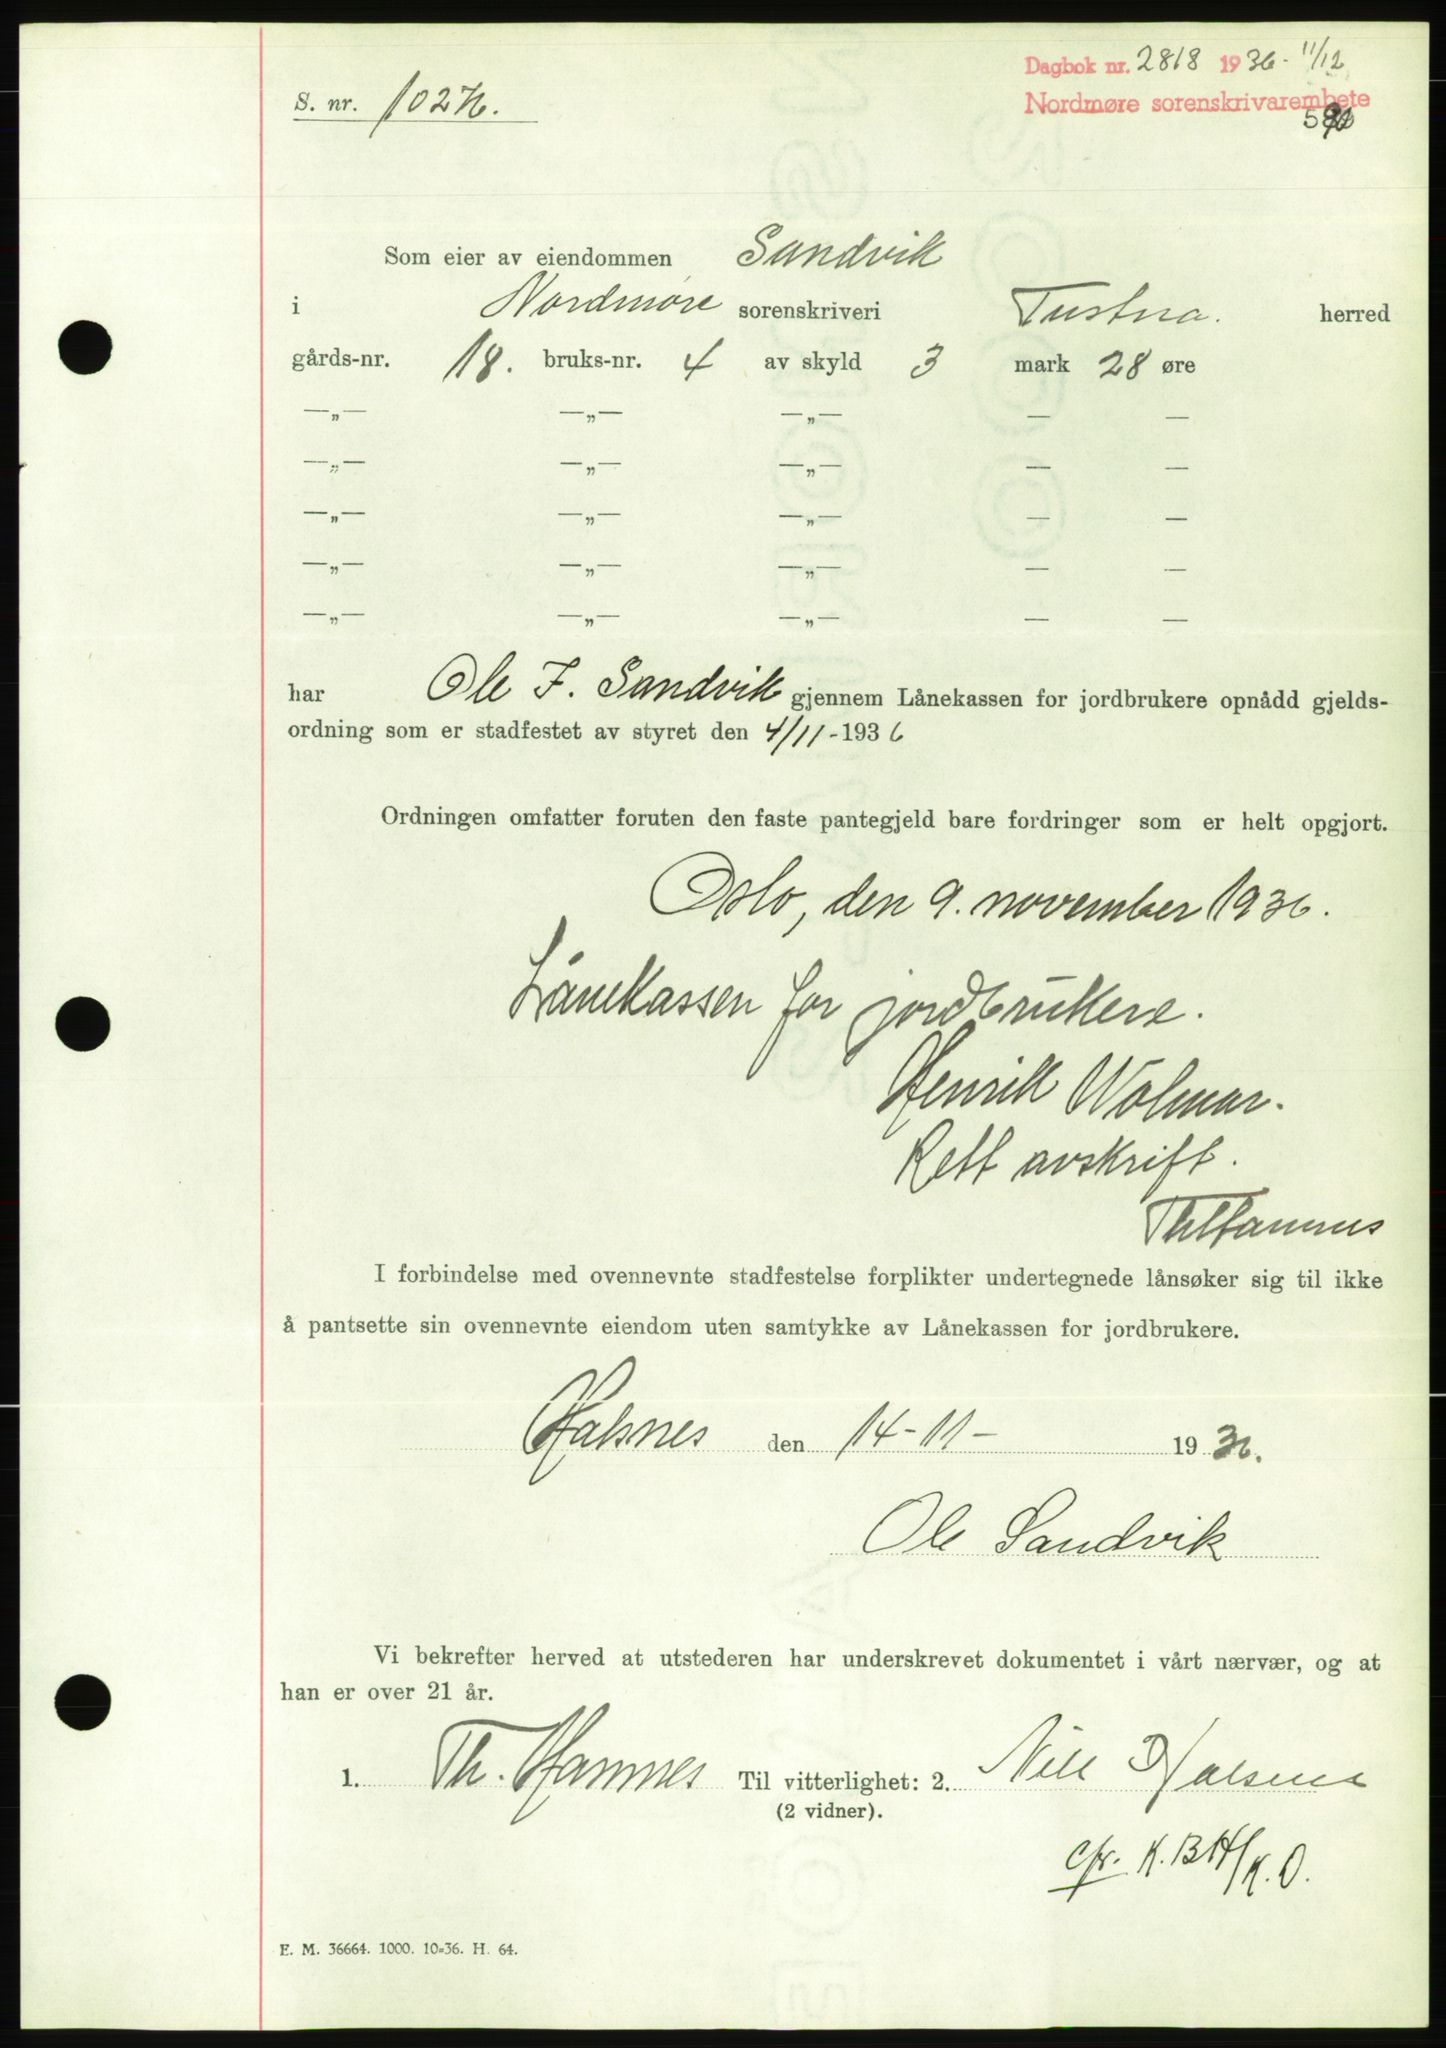 Dagbok nr. 2818 1936 - 11/12
S. nr. 10276.
Nordmøre sorenskrivarembete
Som eier av eiendommen Sandvik
i Nordmøre sorenskriveri Tustna. herred
gårds-nr. 18. bruks-nr. 4 av skyld 3 mark 28 øre
—„— —„— —„— — —
—„— —„— —„— — —
—„— —„— —„— — —
—„— —„— —„— — —
—„— —„— —„— — —
har Ole F. Sandvik gjennem Lånekassen for jordbrukere opnådd gjelds-
ordning som er stadfestet av styret den 4/11-1936
Ordningen omfatter foruten den faste pantegjeld bare fordringer som er helt opgjort.
Oslo, den 9. november 1936.
Lånekassen for jordbrukere.
Henrik Wolmar.
Rett avskrift.
Th Hamnes
I forbindelse med ovennevnte stadfestelse forplikter undertegnede lånsøker sig til ikke
å pantsette sin ovennevnte eiendom uten samtykke av Lånekassen for jordbrukere.
Halsnes den 14-11- 1936.
Ole Sandvik
Vi bekrefter herved at utstederen har underskrevet dokumentet i vårt nærvær, og at
han er over 21 år.
1. Th. Hamnes Til vitterlighet: 2. Nils Halsnes
(2 vidner).
cfr. K. BH/K.O.
E. M. 36664. 1000. 10-36. H. 64.